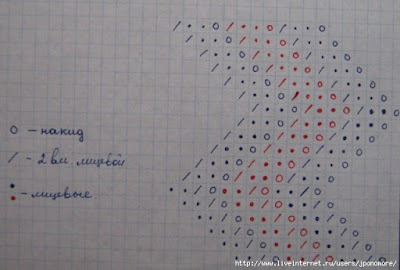 o – накид
/ – 2 вм. лицевой
• – лицевые.
http://www.liveinternet.ru/users/jponomore/